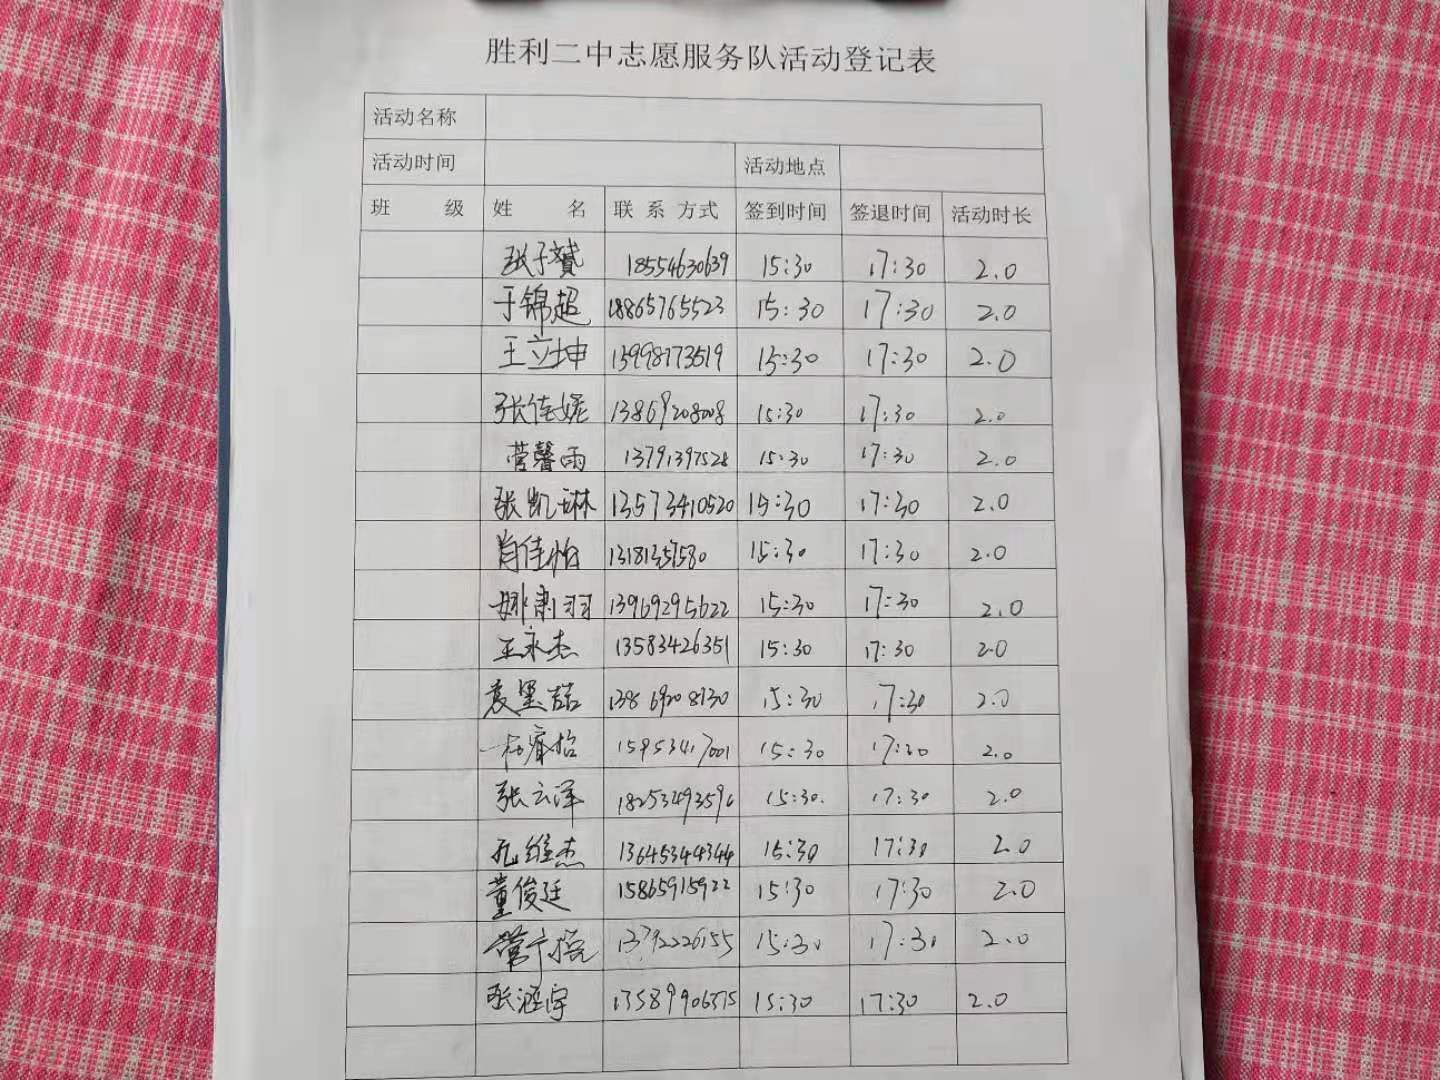 胜利二中志愿服务队活动登记表
活动名称
活动时间 活动地点
班 级 姓 名 联 系 方式 签到时间 签退时间 活动时长
张子赟 18554630639 15:30 17:30 2.0
于锦超 18865765523 15:30 17:30 2.0
王立坤 13998173519 15:30 17:30 2.0
张佳妮 13869208008 15:30 17:30 2.0
营馨雨 13791397528 15:30 17:30 2.0
张凯琳 13573410520 15:30 17:30 2.0
肖佳怡 13181357580 15:30 17:30 2.0
13969295622 15:30 17:30 2.0
王永杰 13583426351 15:30 17:30 2.0
袁墨喆 13869208130 15:30 17:30 2.0
15953417001 15:30 17:30 2.0
张云泽 18253493596 15:30 17:30 2.0
孔维杰 13645344344 15:30 17:30 2.0
董俊廷 15865915922 15:30 17:30 2.0
13792226155 15:30 17:30 2.0
张涵宇 13589906375 15:30 17:30 2.0